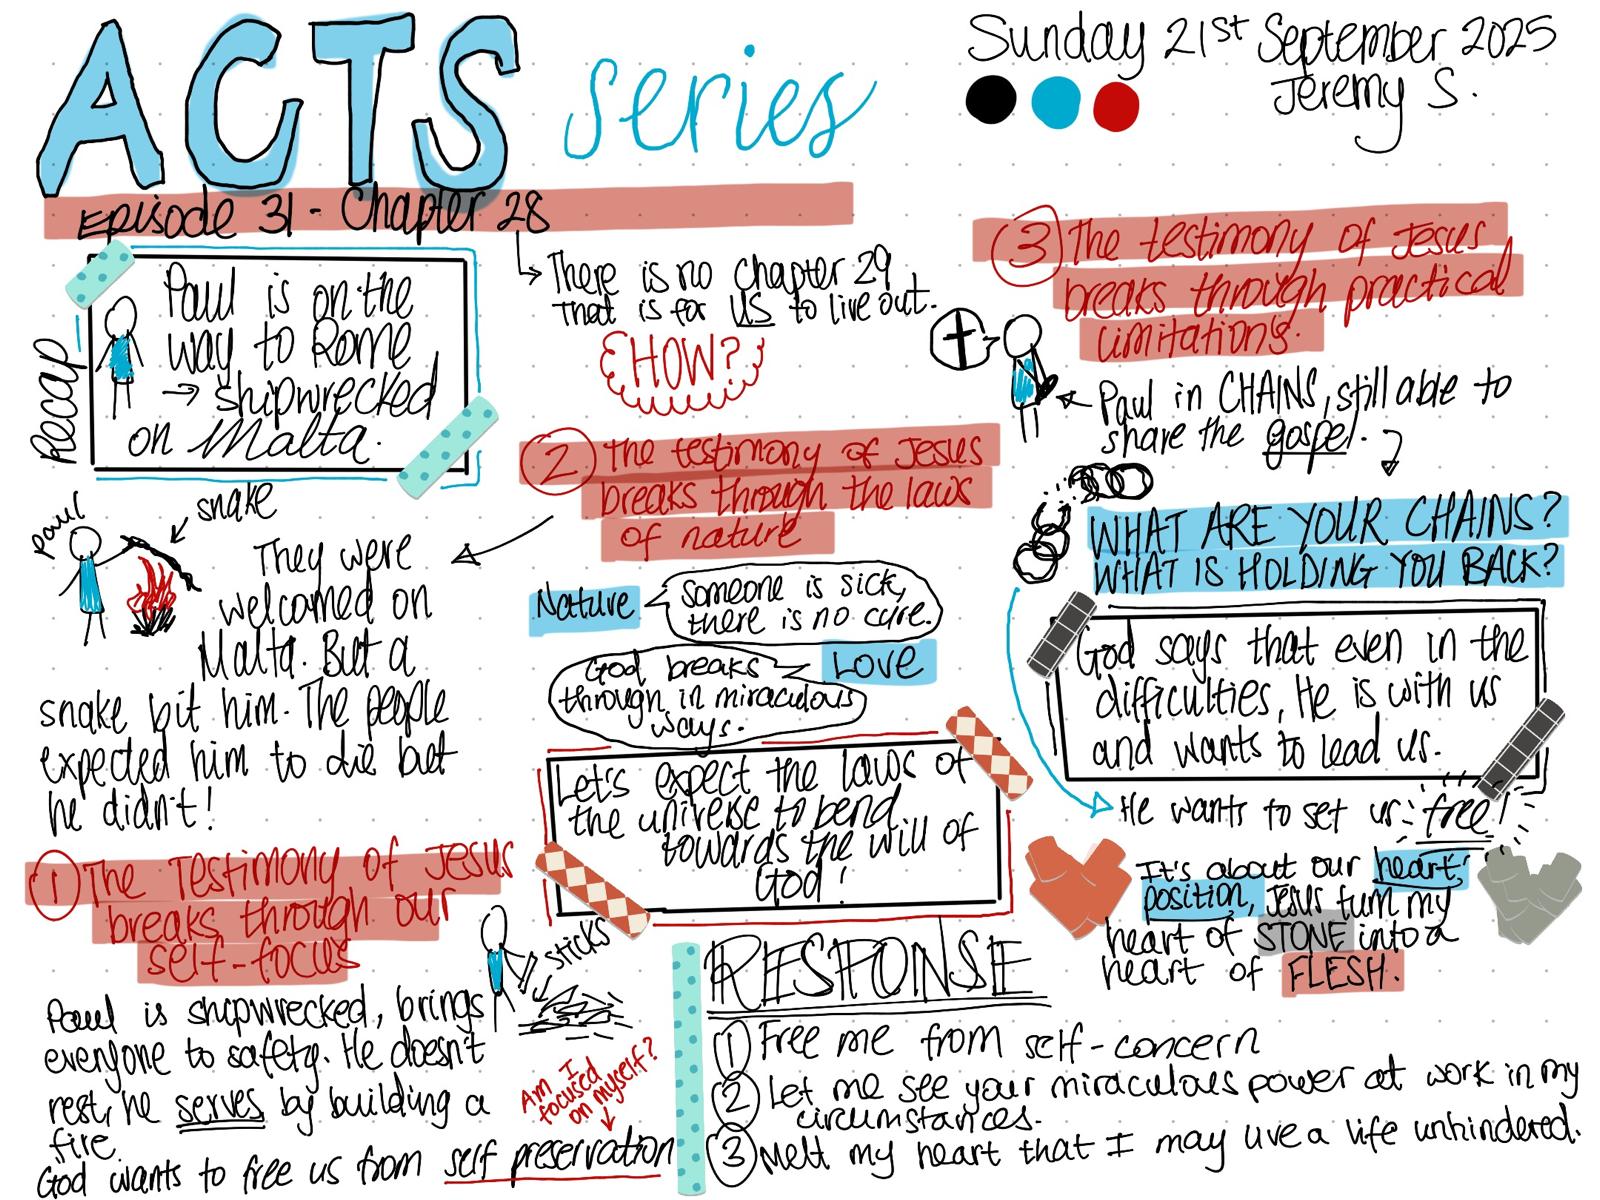 ACTS series
Sunday 21st September 2025
Jeremy S.
Episode 31 - Chapter 28
There is no chapter 29
that is for US to live out.
HOW?
Recap
Paul is on the
way to Rome
→ shipwrecked
on Malta.
Paul
snake
They were
welcomed on
Malta. But a
snake bit him. The people
expected him to die but
he didn't!
① The Testimony of Jesus
breaks through our
self-focus
sticks
Paul is shipwrecked, brings
everyone to safety. He doesn't
rest, he serves by building a
fire.
God wants to free us from self preservation
Am I
focused
on myself?
② The testimony of Jesus
breaks through the laws
of nature
Nature
Someone is sick,
there is no cure.
God breaks
through in miraculous
ways.
LOVE
Let's expect the laws of
the universe to bend
towards the will of
God!
③ The testimony of Jesus
breaks through practical
limitations.
Paul in CHAINS, still able to
share the gospel.
WHAT ARE YOUR CHAINS?
WHAT IS HOLDING YOU BACK?
God says that even in the
difficulties, He is with us
and wants to lead us.
He wants to set us free!
It's about our heart
position, Jesus turn my
heart of STONE into a
heart of FLESH.
RESPONSE
① Free me from self-concern
② Let me see your miraculous power at work in my
circumstances.
③ Melt my heart that I may live a life unhindered.